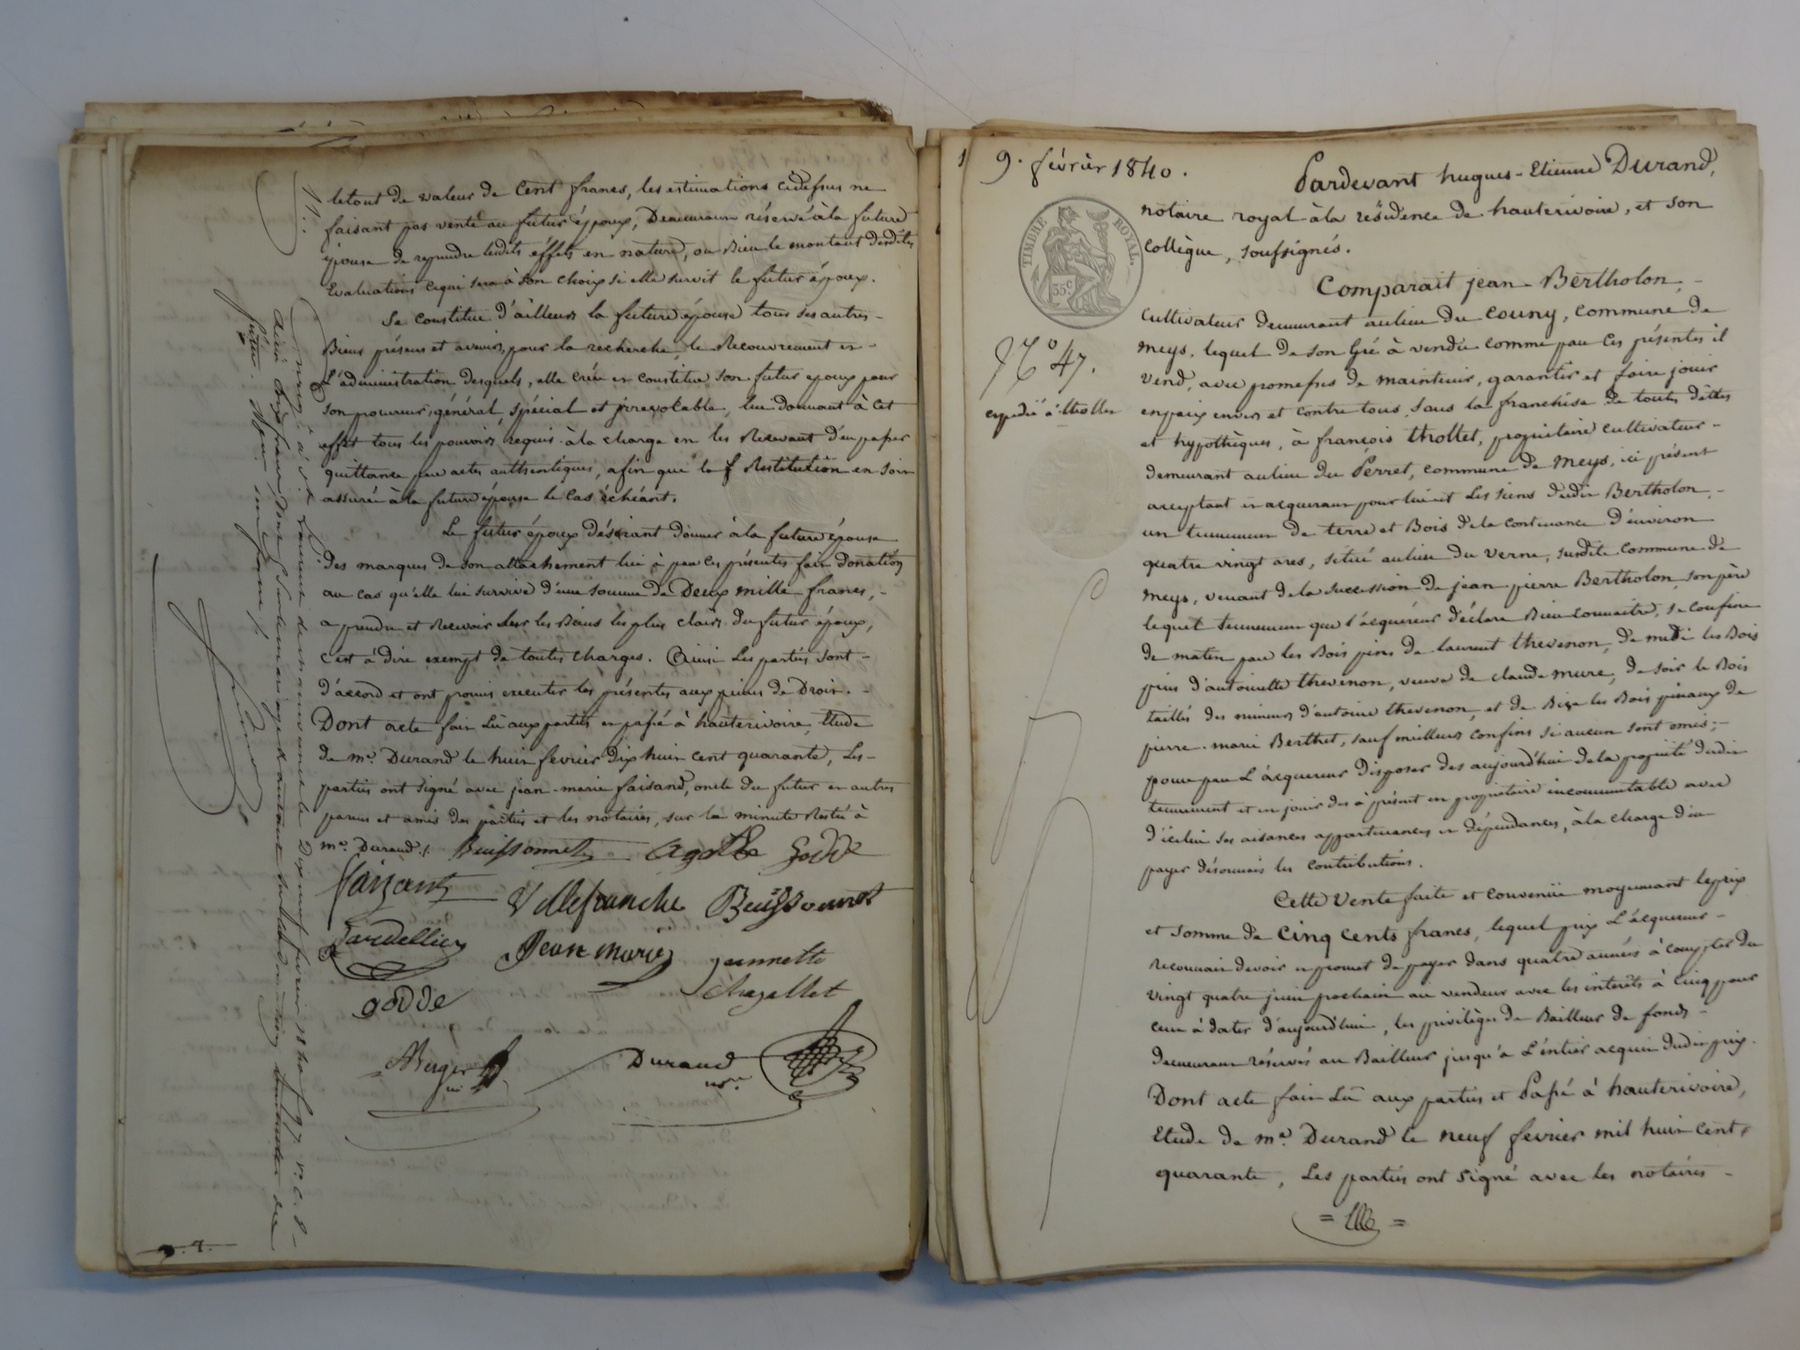 letout de valeur de Cent francs, les estimations cidessus ne
faisant pas vente au futur époux, Demeurant réservé àla future
épouse de reprendre lesdits éffets en nature, ou Bien le montant desdites
Evaluations cequi sera à son choix si elle survit le futur époux.
Se constitue d'ailleurs la future épouse tous ses autres-
Biens présens et avenirs, pour la recherche, le Recouvrement et-
L'administration desquels, elle crée et constitue son futur époux pour
son procureur, général, spécial et irrévocable, lui donnant à cet
effet tous les pouvoirs requis àla charge en les Recevant d'en passer
quittance par actes authentiques, afin que la Restitution en soit
assurée àla future épouse le Cas échéant.
Le futur époux désirant donner àla future épouse
Des marques de son attachement lui à par Ces présentes fait donation
au cas qu'elle lui survive d'une somme de Deux mille francs,-
a prendre et Recevoir sur les Biens les plus clairs du futur époux,
c'est à dire exempt de toutes charges. Ainsi Les parties sont-
d'accord et ont promis exécuter les présentes aux peines de Droit.-
Dont acte fait Lu aux parties et passé à hauterivoire, Etude
de me. Durand le huit fevrier Dix huit cent quarante, Les-
parties ont signé avec jean-marie faisand, oncle du futur et autres
parens et amis des parties et les notaires, sur la minute Restée à
me. Durand./.
Buissonnet
agathe godde
faisant
Villefranche
Buissonnet
Jardellier
Jean marie
jeannette
chazallet
godde
ABerger
Durand
nre
9 · février 1840 .
Pardevant hugues-Etienne Durand,
notaire royal àla résidence de hauterivoire, et son
Collègue, soussignés.
TIMBRE ROYAL
35c
Comparait jean-Bertholon,-
Cultivateur demeurant aulieu du Couny, Commune de
meys, lequel de son Gré à vendu comme par Ces présentes il
N° 47.
vend, avec promesses de maintenir, garantir et faire jouir
expedié à thollet
enpaix envers et contre tous, sous la franchise de toutes dêttes
et hypothèques, à françois thollet, propriétaire cultivateur-
demeurant aulieu du Perret, commune de Meys, ici présent
acceptant et acquerant pour lui et Les siens dudit Bertholon,-
un tennement de terre et Bois dela contenance d'environ
quatre vingt ares, situé aulieu du Verne, susdite commune de
meys, venant dela succession de jean pierre Bertholon, son père
lequel tennement que l'acquéreur déclare Bien connaitre, se confine
de matin par les Bois pins de laurent thevenon, de midi les Bois
pins d'antoinette thevenon, veuve de claude mure, de soir le Bois
taillis des mineurs d'antoine thevenon, et de Bize les Bois pinaux de
pierre-marie Berthet, sauf meilleurs confins si aucun sont omis;-
pour par L'acquereur disposer des aujourd'hui dela propriété dudit
tennement et en jouir des à présent en propriétaire incommutable avec
d'icelui ses aisances appartenances et dépendances, àla charge d'en
payer désormais les contributions.
Cette Vente faite et convenüe moyennant leprix
et Somme de Cinq cents francs, lequel prix L'acquereur-
reconnait devoir et promet de payer dans quatre années à compter du
vingt quatre juin prochain au vendeur avec les intérêts à Cinq pour
cent à dater d'aujourd'hui, les privilèges de Bailleur de fonds-
demeurant réservés au Bailleur jusqu'à L'éntier acquit dudit prix.
Dont acte fait Lû aux parties et Passé à hauterivoire,
Etude de me. Durand le neuf fevrier mil huit cent
quarante, Les parties ont signé avec les notaires-